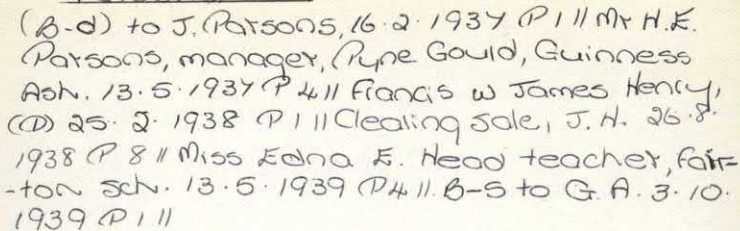 (B-d) to J. Parsons, 16.2.1937 P 1 // Mr H.E.
Parsons, manager, Pyne Gould, Guinness
Ash. 13.5.1937 P 4 // Francis w James Henry,
(D) 25.2.1938 P 1 // Clearing sale, J. H. 26.8.
1938 P 8 // Miss Edna E. Head teacher, Fair=
-ton Sch. 13.5.1939 P4 //. B-S to G. A. 3.10.
1939 P 1 //